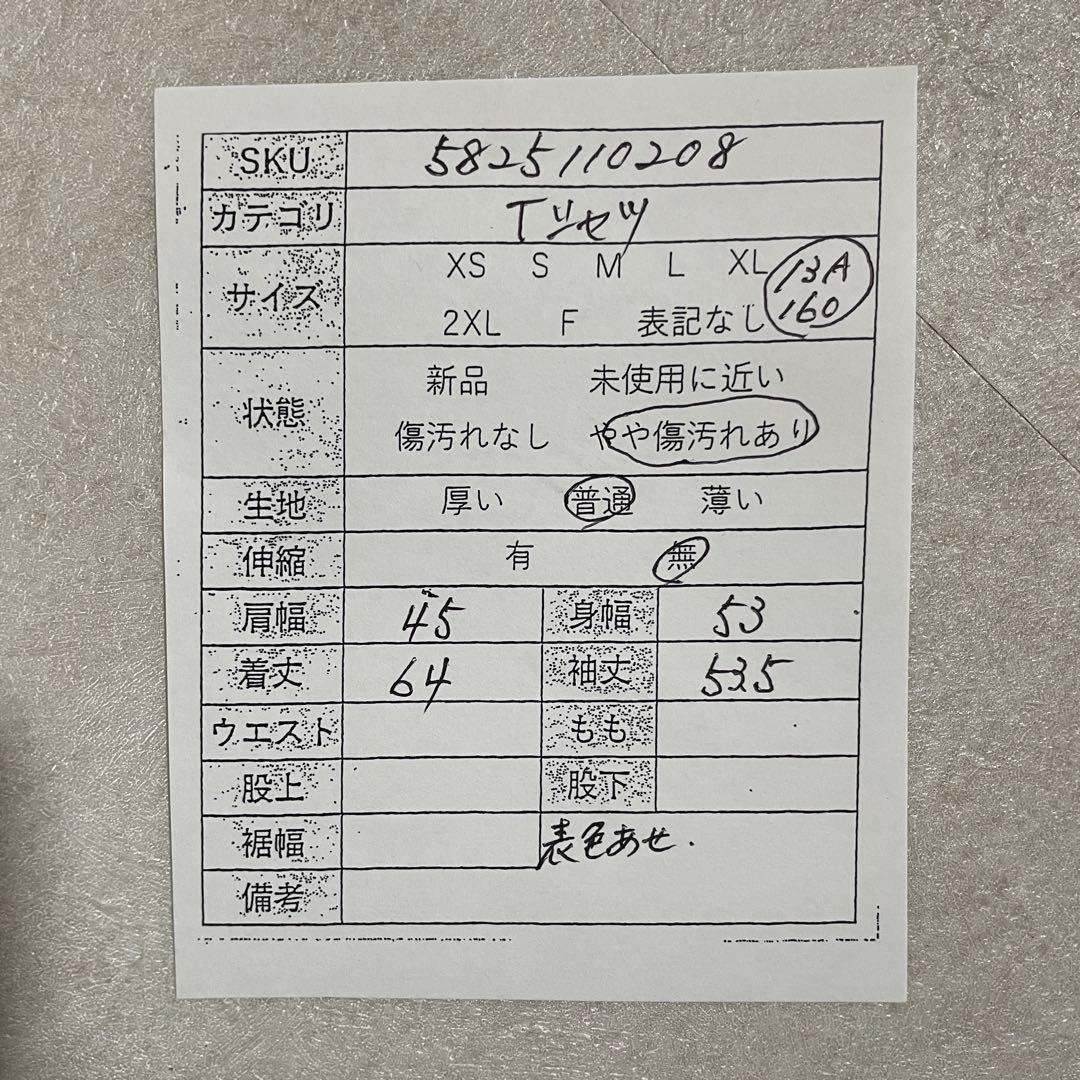 SKU 5825110208
カテゴリ Tシャツ
サイズ XS S M L XL 13A
2XL F 表記なし 160
状態 新品 未使用に近い
傷汚れなし やや傷汚れあり
生地 厚い 普通 薄い
伸縮 有 無
肩幅 45 身幅 53
着丈 64 袖丈 53.5
ウエスト もも
股上 股下
裾幅 表色あせ.
備考